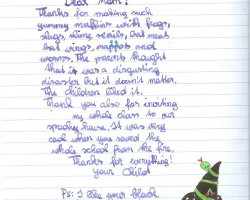 Dear Mom!
Thanks for making such
yummy muffins with frogs,
slugs, slime snails, bat meat
bat wings, and
worms. The parents thought
that it was a disgusting
disaster but it doesn't matter.
The children liked it.
Thank you also for inviting
my whole class to our
spooky house. It was very
cool when you saved the
whole school from the fire.
Thanks for everything!
Your Child
Ps: I like your black